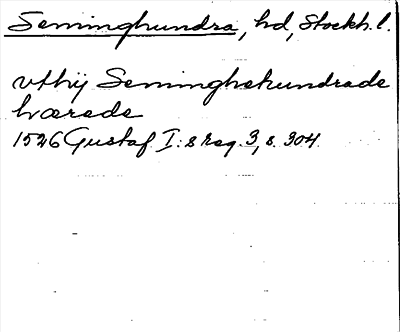 Seminghundra, hd, Stockh. l.
vthij Seminghehundrade
hwrede
1526 Gustaf I:s reg. 3, s. 304.